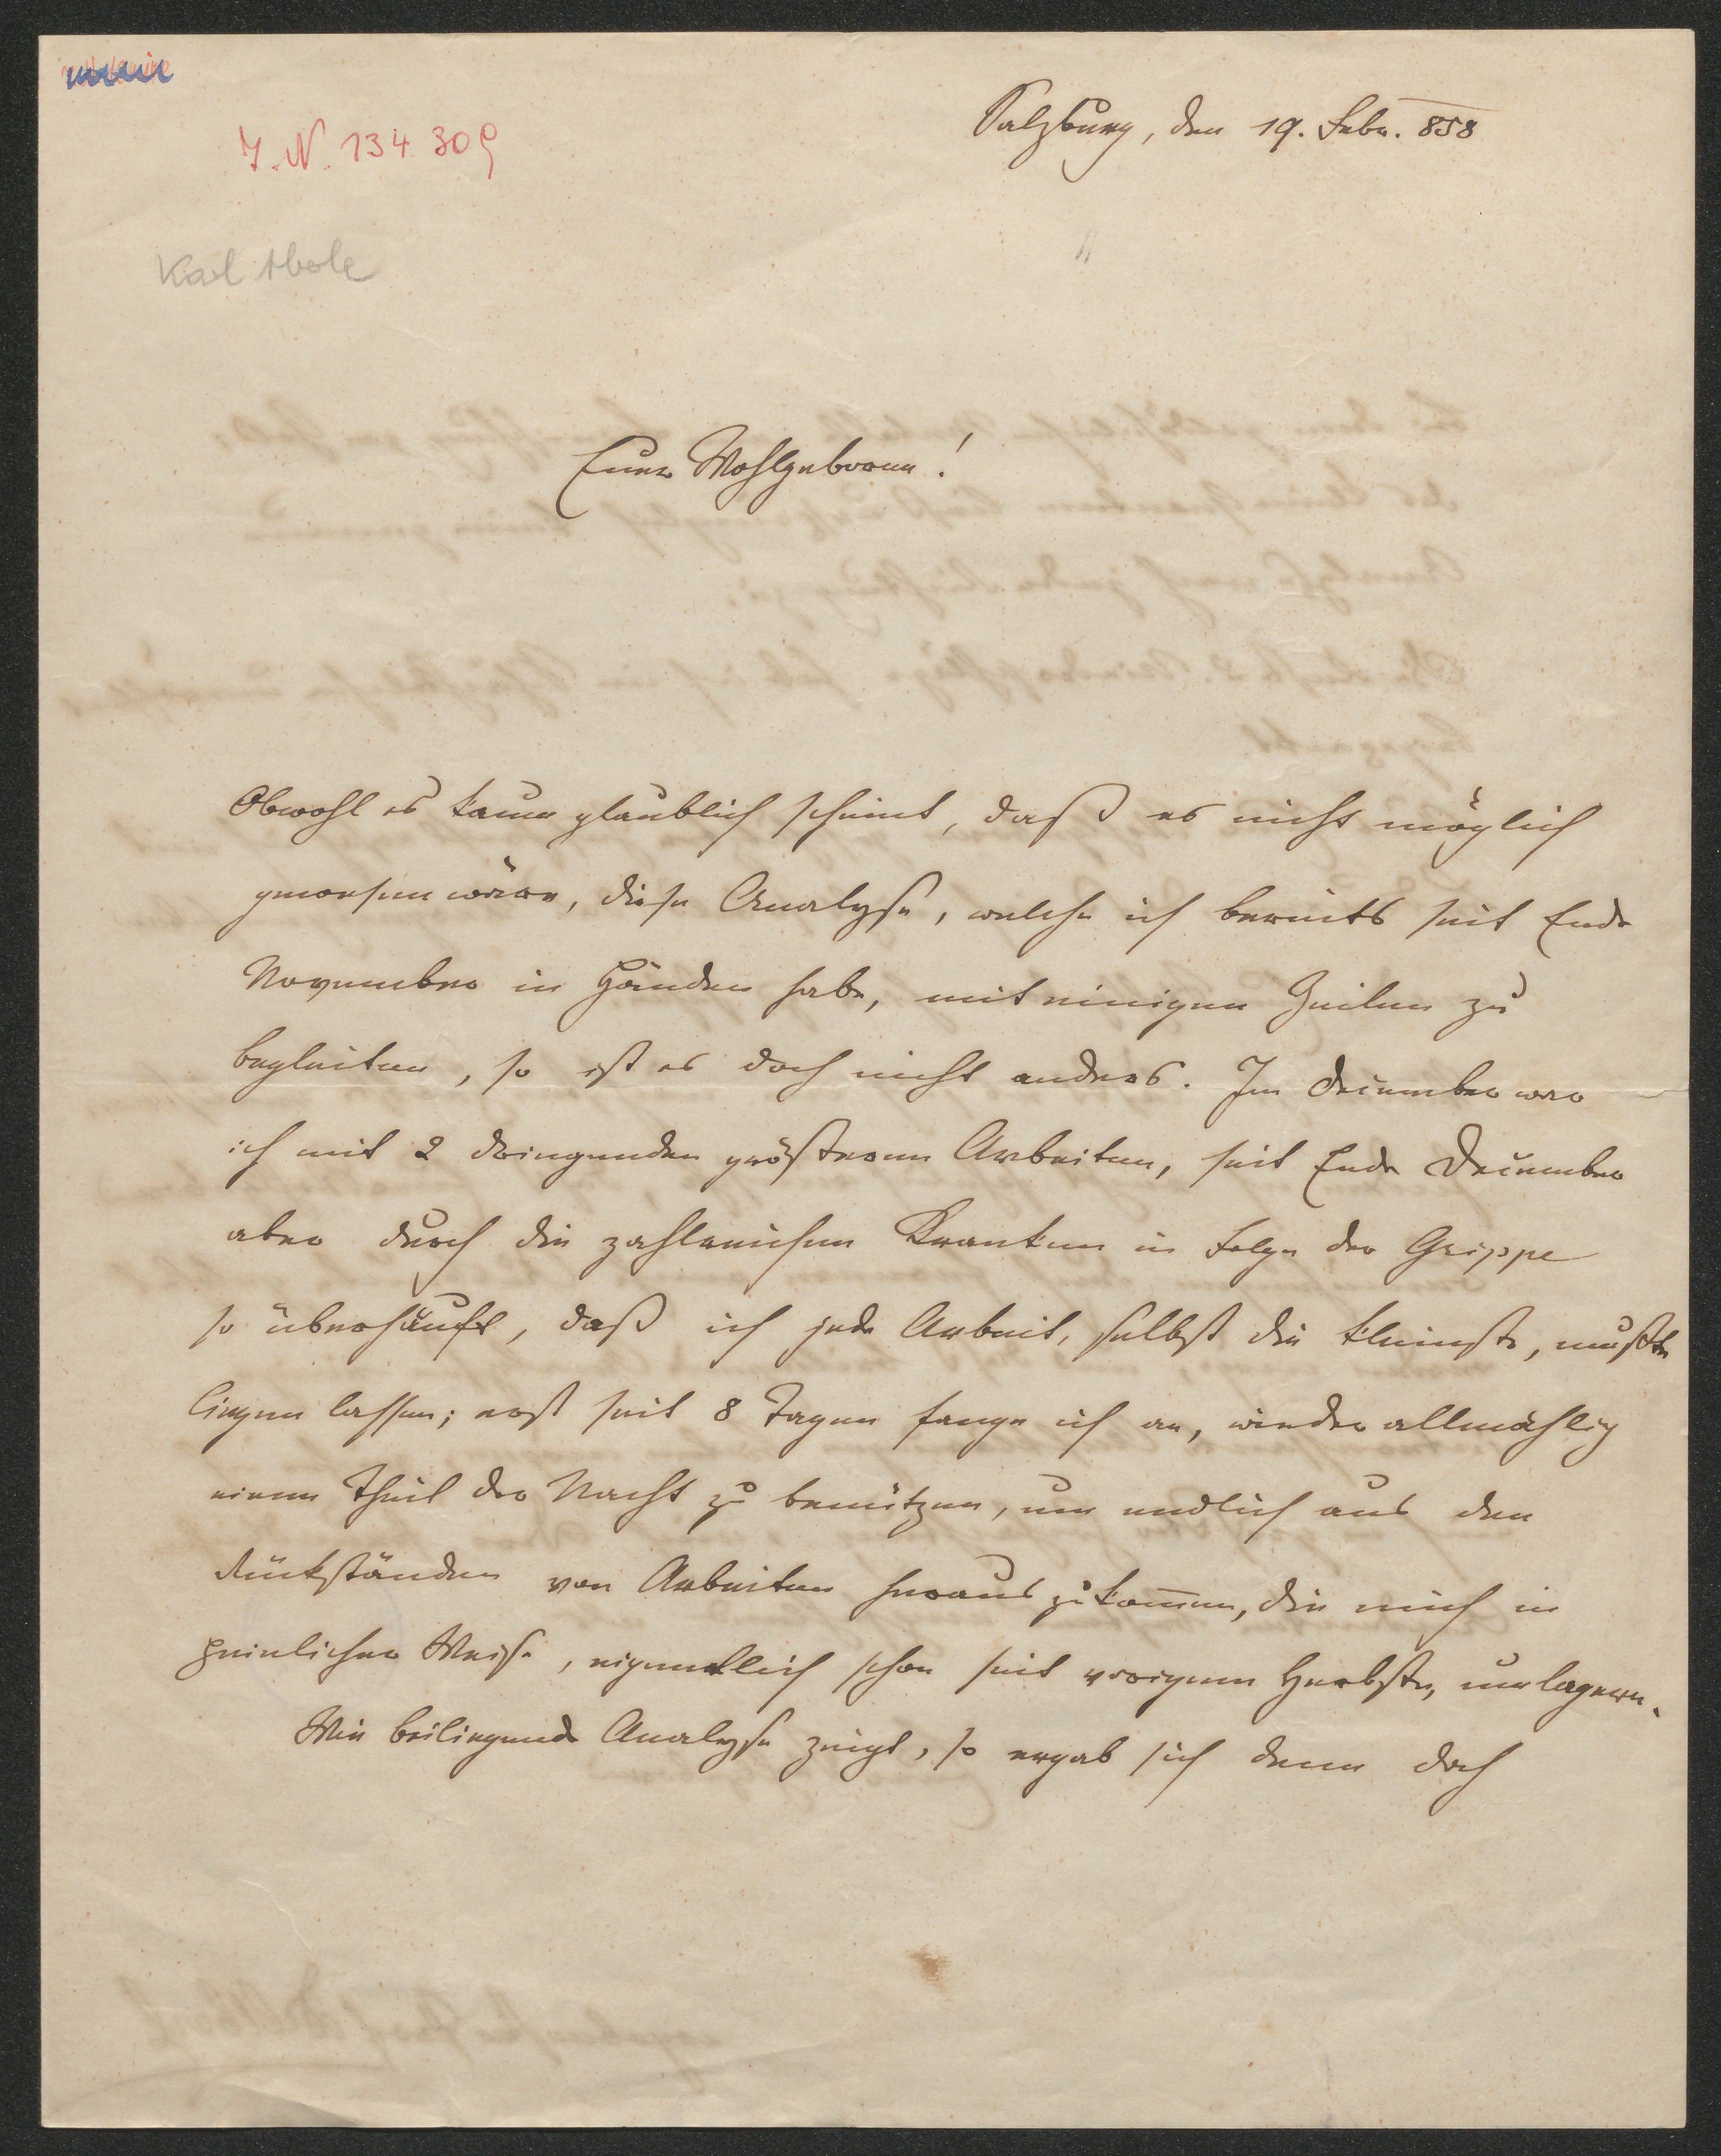 I. N. 134 309
Salzburg, den 19. Febr. 858
Karl Abole
Euer Wohlgeboren!
Obwohl es kaum glaublich scheint, daß es nicht möglich
gewesen wäre, diese Analyse, welche ich bereits seit Ende
November in Händen habe, mit einigen Zeilen zu
begleiten, so ist es doch nicht anders. Im December war
ich mit 2 dringenden größeren Arbeiten, seit Ende December
aber durch die zahlreichen Kranken in Folge der Grippe
so überhäuft, daß ich jede Arbeit, selbst die kleinste, mußte
liegen lassen; erst seit 8 Tagen fange ich an, wieder allmählig
einen Theil der Nacht zu benützen, um endlich aus den
Rückständen von Arbeiten herauszukom̄en, die mich in
peinlicher Weise, eigentlich schon seit vorigem Herbste, umlagern.
Wie beiliegende Analyse zeigt, so ergab sich denn doch